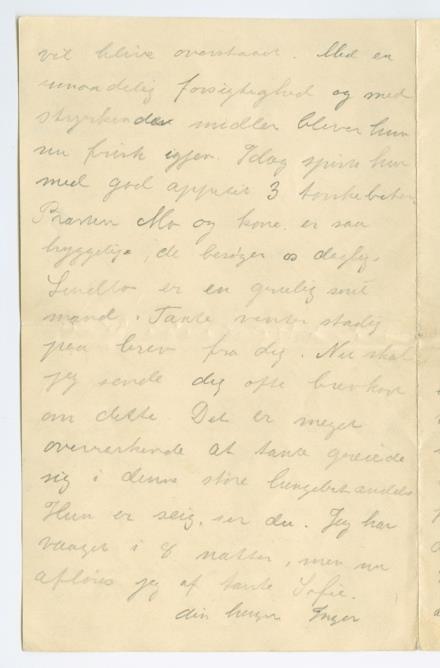 vil blive overstaaet. Med en
umaadelig forsigtighed og med
styrkende midler bliver hun
nu frisk igjen. Idag spiste hun
med god appetit 3 torske
Presten Mo og kone er saa
hyggelige, de besøger os daglig.
er en grulig snil
mand. Tante venter stadig
paa brev fra dig. Nu skal
jeg sende dig ofte brevkort
om dette. Det er meget
at tante greiede
sig i denne store lungebetændelse
Hun er seig, ser du. Jeg har
vaaget i 8 natter, men nu
afløses jeg af tante Sofie.
din Inger